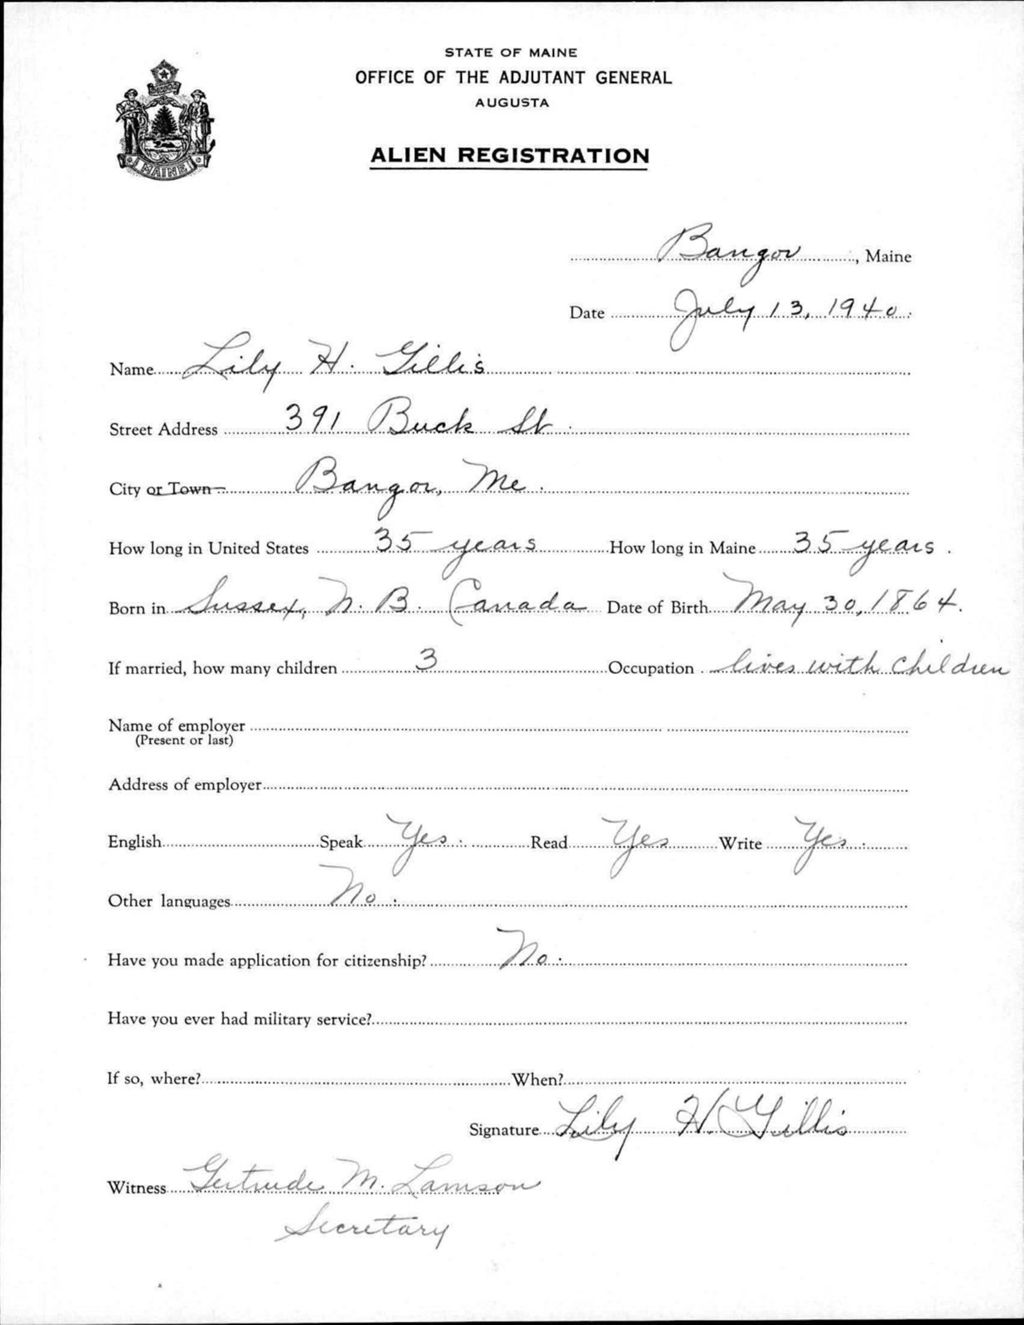 STATE OF MAINE
OFFICE OF THE ADJUTANT GENERAL
AUGUSTA
ALIEN REGISTRATION
MAINE
Bangor, Maine
Date July 13, 1940.
Name Lily H. Gillis
Street Address 391 Buck St.
City or Town Bangor, Me.
How long in United States 35 years How long in Maine 35 years.
Born in Sussex, N. B. Canada Date of Birth May 30, 1864.
If married, how many children 3 Occupation lives with children
Name of employer
(Present or last)
Address of employer
English Speak Yes. Read Yes Write Yes.
Other languages No.
Have you made application for citizenship? No.
Have you ever had military service?
If so, where? When?
Signature Lily H. Gillis
Witness Gertrude M. Lamson
Secretary